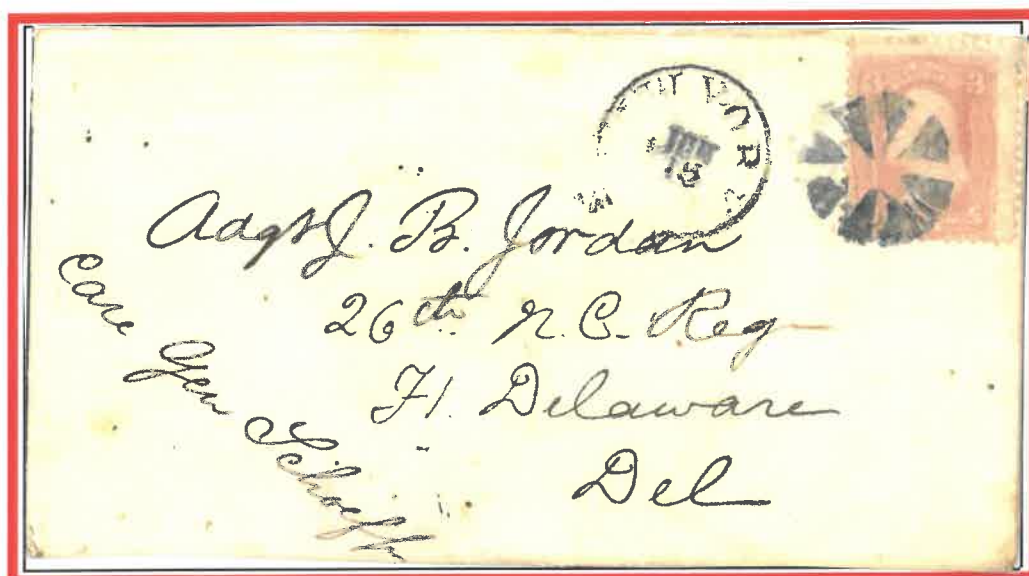 Adgt J. B. Jordan
26th N. C. Reg
Ft. Delaware
Del
Care Gen Schoepf